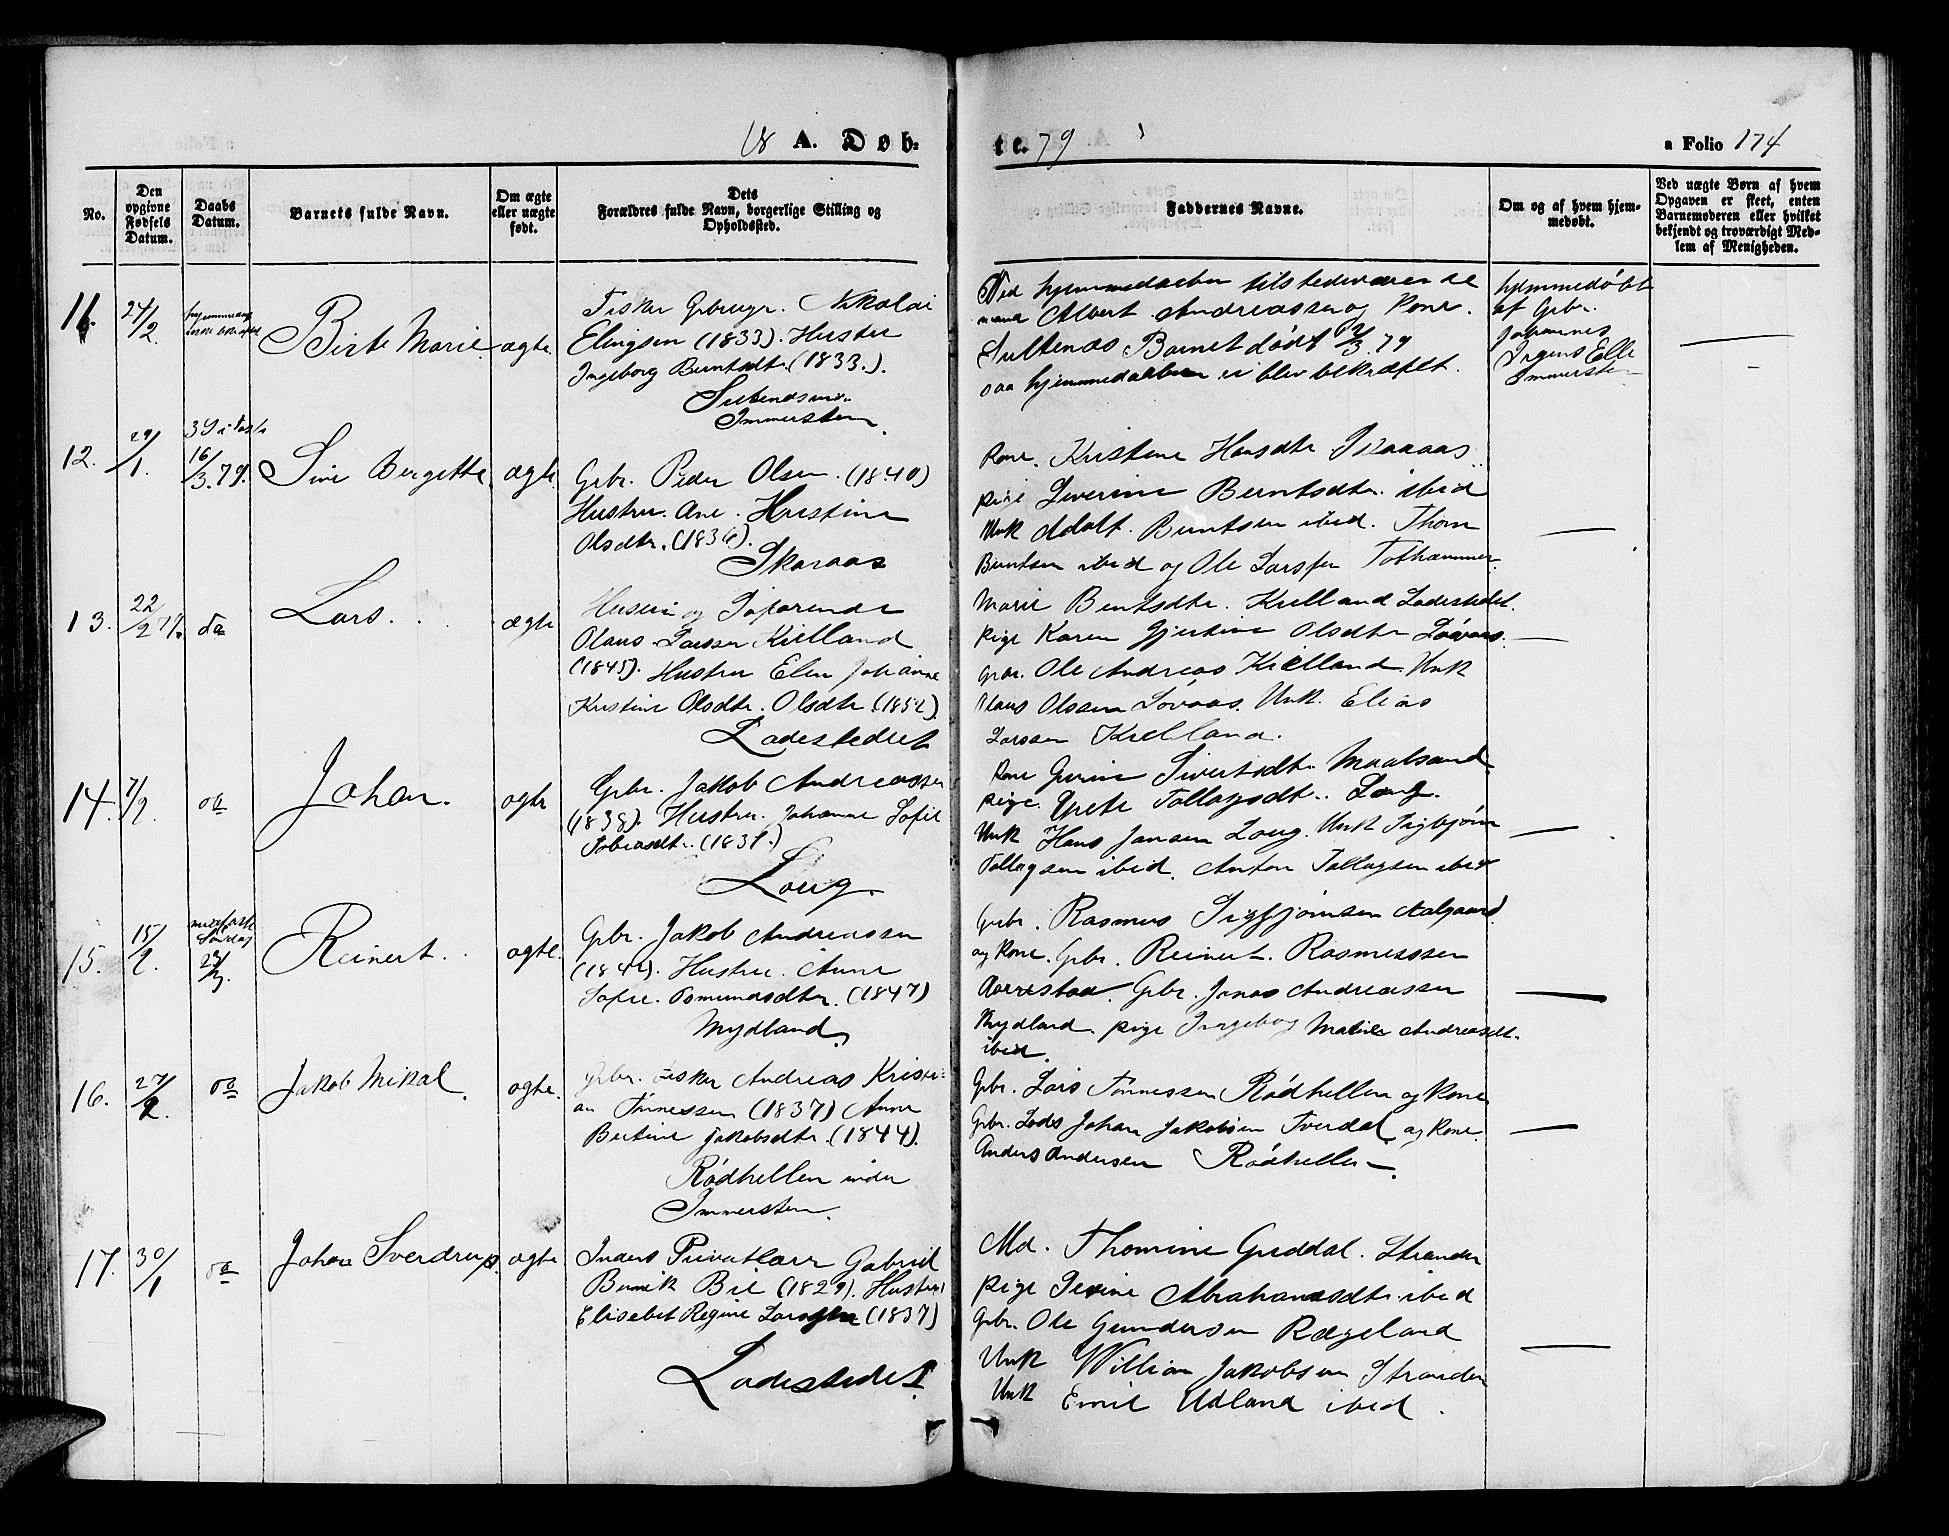 18 A. Døb-
te. 79
a Folio 174
No.
Den opgivne Fødsels Datum.
Daabs Datum.
Barnets fulde Navn.
Om ægte eller uægte født.
Dets Forældres fulde Navn, borgerlige Stilling og Opholdssted.
Faddernes Navne.
Om og af hvem hjemmedøbt.
Ved uægte Børn af hvem Opgaven er skeet, enten Barnemoderen eller hvilket bekjendt og troværdigt Medlem af Menigheden.
11.
24/2
Birte Marie
ægte
Fisker Gbruger. Nikolai
Elingsen (1833). Hustru
Ingeborg Berntsdtr. (1833.).
Immersten
Ved hjemmedaaben tilstedeværende
Albert Andreassen og Kone.
Barnet dødt 2/3.79
saa hjemmedaaben ei blev bekræftet.
hjemmedøbt
af Gbr.
Johannes
Immersten
12.
29/1.
3 S i Faste
16/3.79.
Sine Bergitte
ægte
Gbr. Peder Olsen. (1840)
Hustru. Ane. Kristine
Olsdtr. (1836).
Skaraas
Kone. Kristine Hansdtr Skaraas
pige Severine Berntsdtr. ibid
Unk Adolf. Berntsen ibid. Thom
Berntsen ibid og Ole Larssen Tothammer
13.
22/2 79.
do
Lars.
ægte
Huseier og Søfarende
Olaus Larssen Kielland
(1845). Hustru Elen Johanne
Kristine Olsdtr. Olsdtr. (1852).
Ladestedet
Marie Berntsdtr. Kielland Ladestedet.
pige Karen Gjertine Olsdtr Løvaas.
Gbr. Ole Andreas Kielland. Unk
Olaus Olssen Løvaas. Unk. Elias
Larssen Kielland.
14.
7/2.
do
Johan.
ægte
Gbr. Jakob Andreassen
(1838). Hustru. Johanne Sofie
Tobiasdtr. (1837.)
Loug.
Kone Sivertsdtr. Maalsand.
pige. Grete Tollagsdtr.. Loug.
Unk Hans Jansen Loug. Unk Sigbjørn
Tollagsen ibid. Anton Tollagsen ibid
15.
15/2.
midfaste
Søndag
23/3.
Reinert.
ægte.
Gbr. Jakob Andreassen
Hustru. Anne
Sofie. Osmundsdtr. (1847)
Mydland
Gbr. Rasmus Sigbjørnsen Aalgaard
og Kone. Gbr. Reinert. Rasmussen
Aarrestad. Gbr. Jonas Andreassen
Mydland. pige Ingeborg Malene Andreasdt.
ibid.
16.
27/2.
do
Jakob Mikal
ægte.
Gbr. Fisker Andreas Kristi-
an Tønnessen (1837) Anne
Bertine Jakobsdtr. (1844).
Rødhellen under
Immersten.
Gbr. Lars Tønnessen Rødhellen og Kone
Gbr. Lods Johan Jakobsen Tverdal og Kone.
Anders Andersen Rødhellen.
17.
30/1
do
Johan Sverdrup.
ægte
Privatlærer Gabriel
Bernik Bie (1829). Hustru
Elisebet Regine Larssen (1837)
Ladestedet.
Md. Thomine Guddal. Stranden
pige Sevine Abrahamsdtr ibid
Gbr. Ole Gundersen Rægeland
Unk William Jakobsen Stranden
Unk Emil Udland ibid.